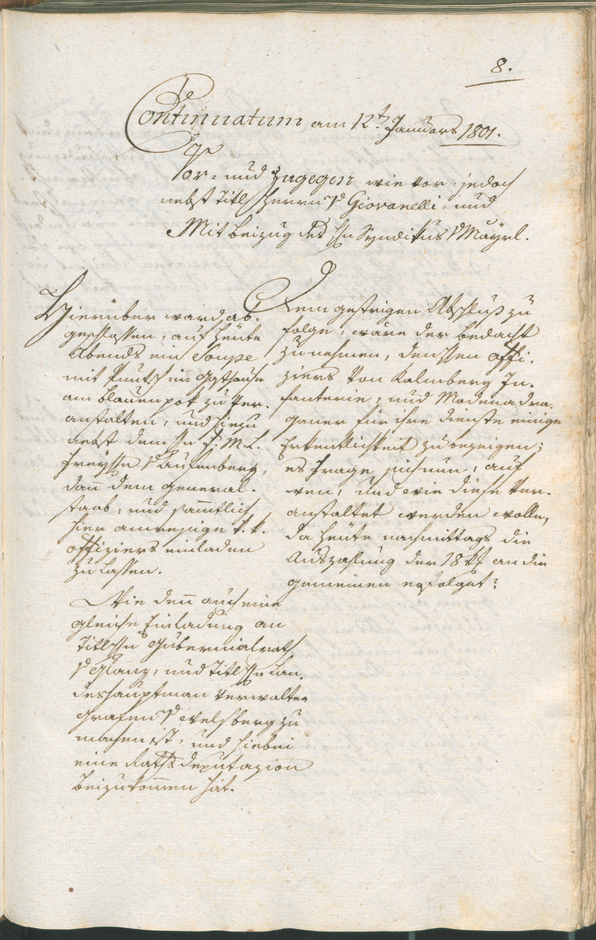 8.
Continuatum am 12t. Januars 1801.
Vor- und zugegen wie vor, jedoch
nebst Titl Herrn v Giovanelli, und
Mit beizug des Hn Syndikus v Mayrl.
Dem gestrigen Abschluß zu
folge, wäre der bedacht
zu nehmen, denen offi-
ziers von Kalmberg In-
fanterie, und Modena dra-
goner für ihre dienste einige
Erkentlichkeit zu bezeigen;
es frage sich nun, auf
wen, und wie diese ver-
anstaltet werden wolle,
da heute nachmittags die
Auszahlung der 18 an die
gemeinen erfolget?
Hierüber ward ab-
geschlossen, auf heute
Abends ein Soupe
mit Punsch im Gasthause
am blauen pok zu ver-
anstalten, und hiezu
nebst dem Hn F. M. L.
Freyhn v Laufenberg,
dan dem General-
staab, und sammtlich
hier anwesige t. t.
offiziers einladen
zu lassen.
Wie den auch eine
gleiche Einladung an
Titl Hn Gubernialrath
v Glanz, und Titl Hn Lan-
deshauptman Verwalter
Grafen v Welsberg zu
machen ist, und hiebei
eine Rathsdeputazion
beizukommen hat.